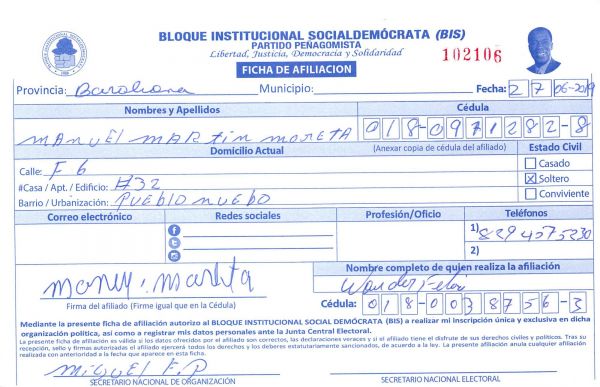 BLOQUE INSTITUCIONAL SOCIALDEMÓCRATA (BIS)
PARTIDO PEÑAGOMISTA
Libertad, Justicia, Democracia y Solidaridad
102106
FICHA DE AFILIACION
Provincia: Barahona Municipio: Fecha: 27 06-2019
Nombres y Apellidos Cédula
manuel martin moreta 018-0971282-8
Domicilio Actual (Anexar copia de cédula del afiliado) Estado Civil
Calle: F 6 Casado
#Casa / Apt. / Edificio: #32 Soltero
Barrio / Urbanización: Pueblo nuebo Conviviente
Correo electrónico Redes sociales Profesión/Oficio Teléfonos
1) 829 4575230
2)
Nombre completo de quien realiza la afiliación
Wander Feliz
Firma del afiliado (Firme igual que en la Cédula) Cédula: 018-0038756-3
Mediante la presente ficha de afiliación autorizo al BLOQUE INSTITUCIONAL SOCIAL DEMÓCRATA (BIS) a realizar mi inscripción única y exclusiva en dicha
organización política, así como a registrar mis datos personales ante la Junta Central Electoral.
La presente ficha de afiliación es válida si los datos ofrecidos por el afiliado son correctos, las declaraciones veraces y si el titular tiene el disfrute de sus derechos civiles y políticos. Tras su
recepción, sello y firmas autorizadas el afiliado ejercerá todos los derechos y los deberes estatutariamente sancionados, de acuerdo a la ley. La presente afiliación anula cualquier afiliación
realizada con anterioridad a la fecha que aparece en esta ficha.
Miguel F.P
SECRETARIO NACIONAL DE ORGANIZACIÓN SECRETARIO NACIONAL ELECTORAL